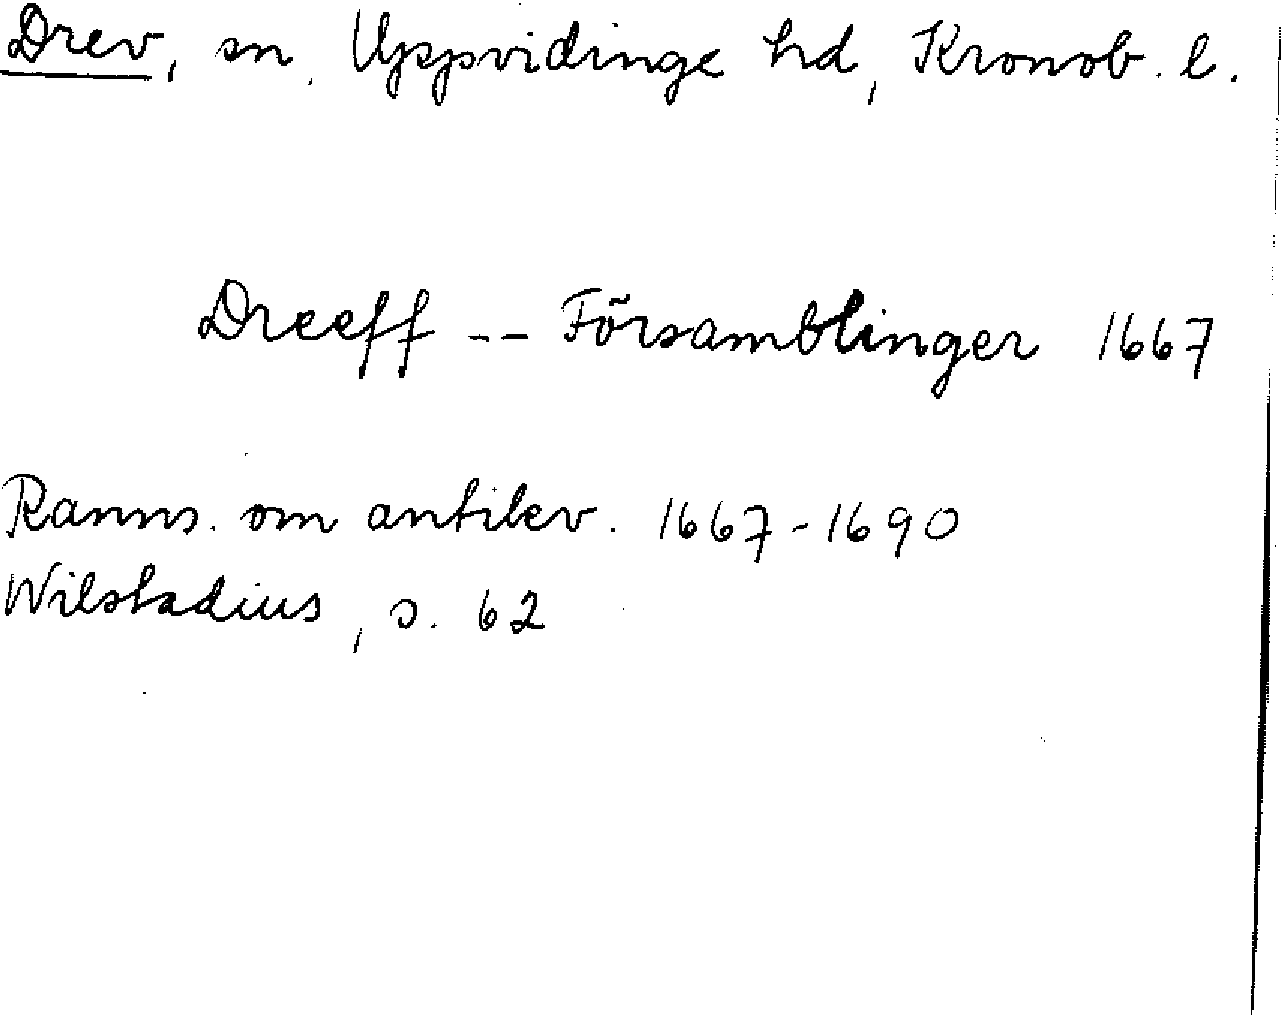 Drev, sn. Uppvidinge hd, Kronob. l.
Dreeff -- Församblinger 1667
Ranns. om antikv. 1667-1690
Wilstadius, s. 62